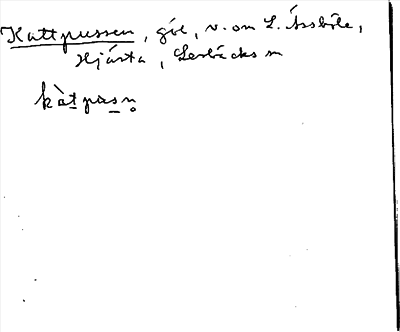 Kattpussen, göl, v. om L. Åssböle,
Hjärta, Lerbäcks sn
kàtpusn̥